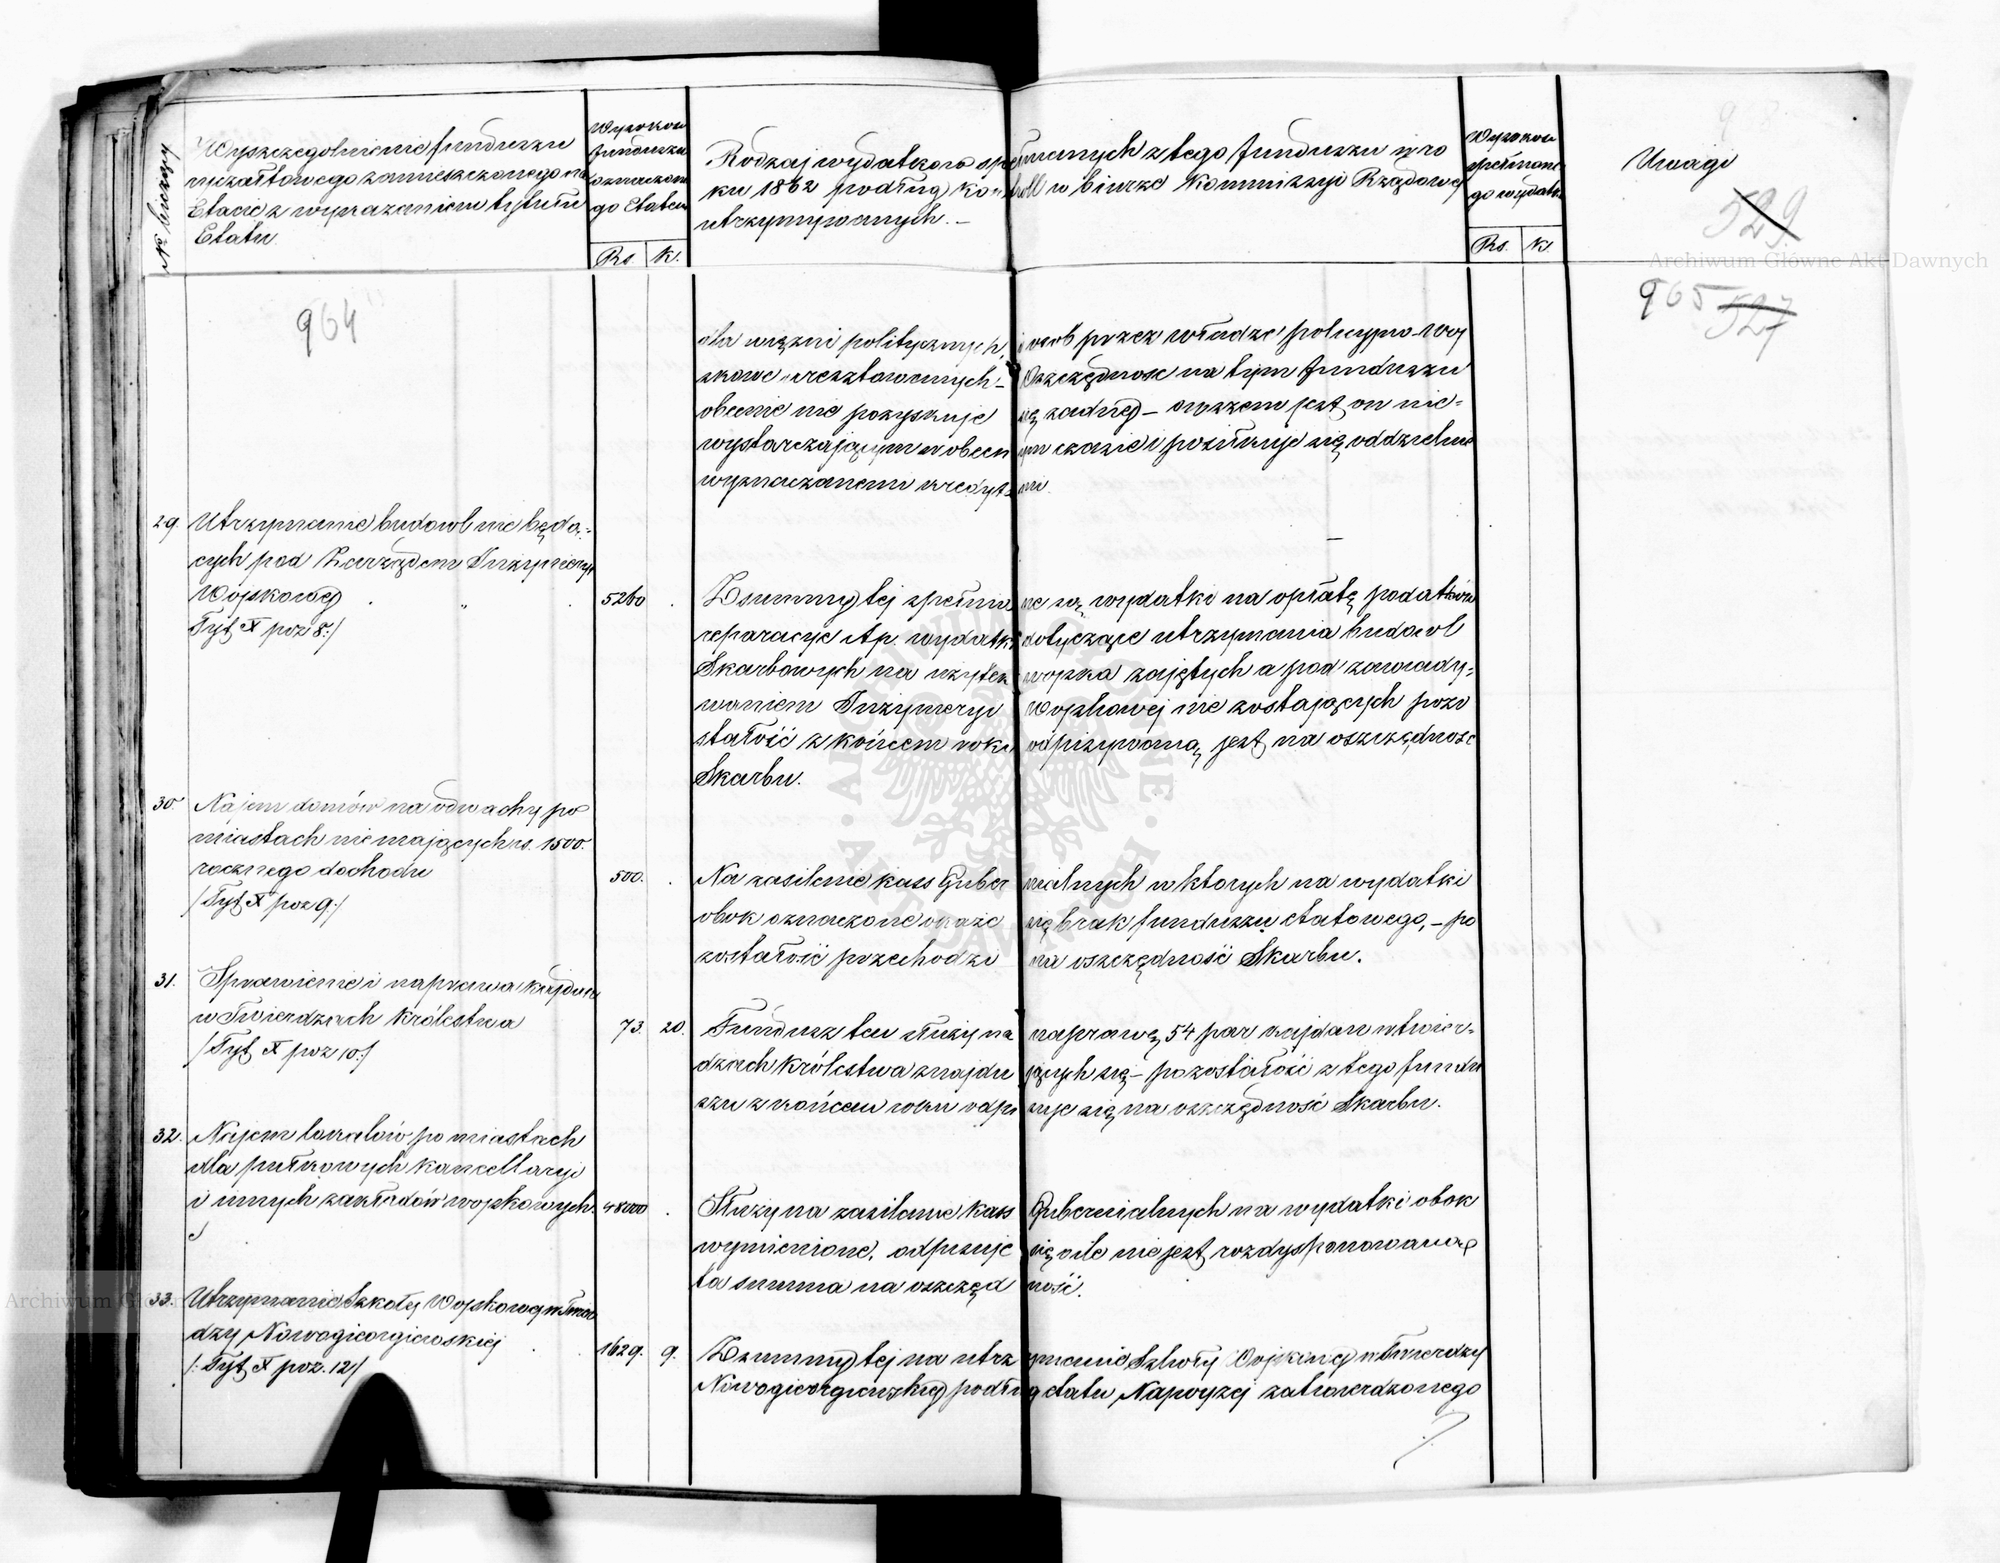 № bieżący
Wyszczególnienie funduszu
niezałtowego zamieszczonego na
Etacie z wyrażeniem tytułu
Etatu.
Wysokość
funduszu
oznaczone
go Etatem
Rs. K.
Rodzaj wydatków spełnianych z tego funduszu w ro
ku 1862 podług kontroll w biurze Kommissyi Rządowej
utrzymywanych. –
Wysokość
spełnione
go wydatku
Rs. K.
Uwagi
529
964
965 527
dla więzni politycznych i osob przez władze policyjno-woj
skowe aresztowanych – Oszczędnosc na tym funduszu
obecnie nie pozyskuje się żadnej – owszem jest on nie=
wystarczającym w obecnym czasie i posiłkuje się oddzielnie
wyznaczonemi kredytami
29. Utrzymanie budowl nie będą=
cych pod Zarządem Inżynieryi
Wojskowej
Tyt X poz 8:/
5260 .
Z summy tej spełniane są wydatki na opłatę podatków
reparacye itp. wydatki dotyczące utrzymania budowl
Skarbowych na użytek wojska zajętych a pod zawiady=
waniem Inżynieryi Wojskowej nie zostających pozo
stałość z końcem roku odpisywaną jest na oszczędność
Skarbu.
30. Najem domów na odwachy po
miastach nie mających rs. 1500.
rocznego dochodu
/Tyt X poz 9:/
500. .
Na zasilenie kass Gubernialnych w ktorych na wydatki
obok oznaczone okaże się brak funduszu etatowego, – po
zostałość przechodzi na oszczędność Skarbu.
31. Sprawienie i naprawa kajdan
w Twierdzach Królestwa
/Tyt X poz 10:/
73. 20.
Fundusz ten służy na naprawę 54 par kajdan w twier=
dzach Królestwa znajdujących się – pozostałość z tego fundu
szu z końcem roku odpisuje się na oszczędność Skarbu.
32. Najem lokalów po miastach
dla pułkowych kancellaryi
i innych zakładów wojskowych.
48000 .
Służy na zasilenie kass Gubernialnych na wydatki obok
wymienione, odpisuje się o ile nie jest rozdysponowaną
ta summa na oszczędność.
33. Utrzymanie Szkoły Wojskowej w Twier
dzy Nowogieorgiewskiej
/: Tyt X poz. 12/
1629. 9.
Z summy tej na utrzymanie Szkoły Wojskowej w Twierdzy
Nowogieorgiewskiej podług etatu Najwyżej zatwierdzonego
Archiwum Główne Akt Dawnych